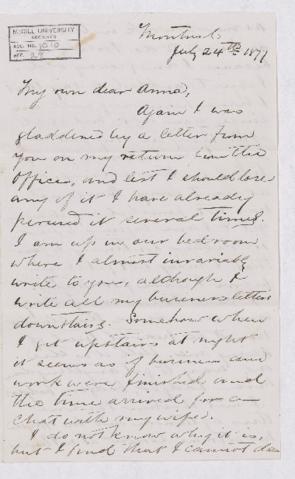 McGILL UNIVERSITY
ARCHIVES
ACC. NO.
REF.
Montreal
July 24th 1877
My own dear Anna,
Again I was
gladdened by a letter from
you on my return from the
Office, and lest I should lose
any of it I have already
perused it several times.
I am up in our bedroom
where I almost invariably
write to you, although I
write all my business letters
downstairs. Somehow when
I get upstairs at night
it seems as if business and
work were finished and
the time arrived for a
chat with my wifie.
I do not know why it is,
but I find that I cannot